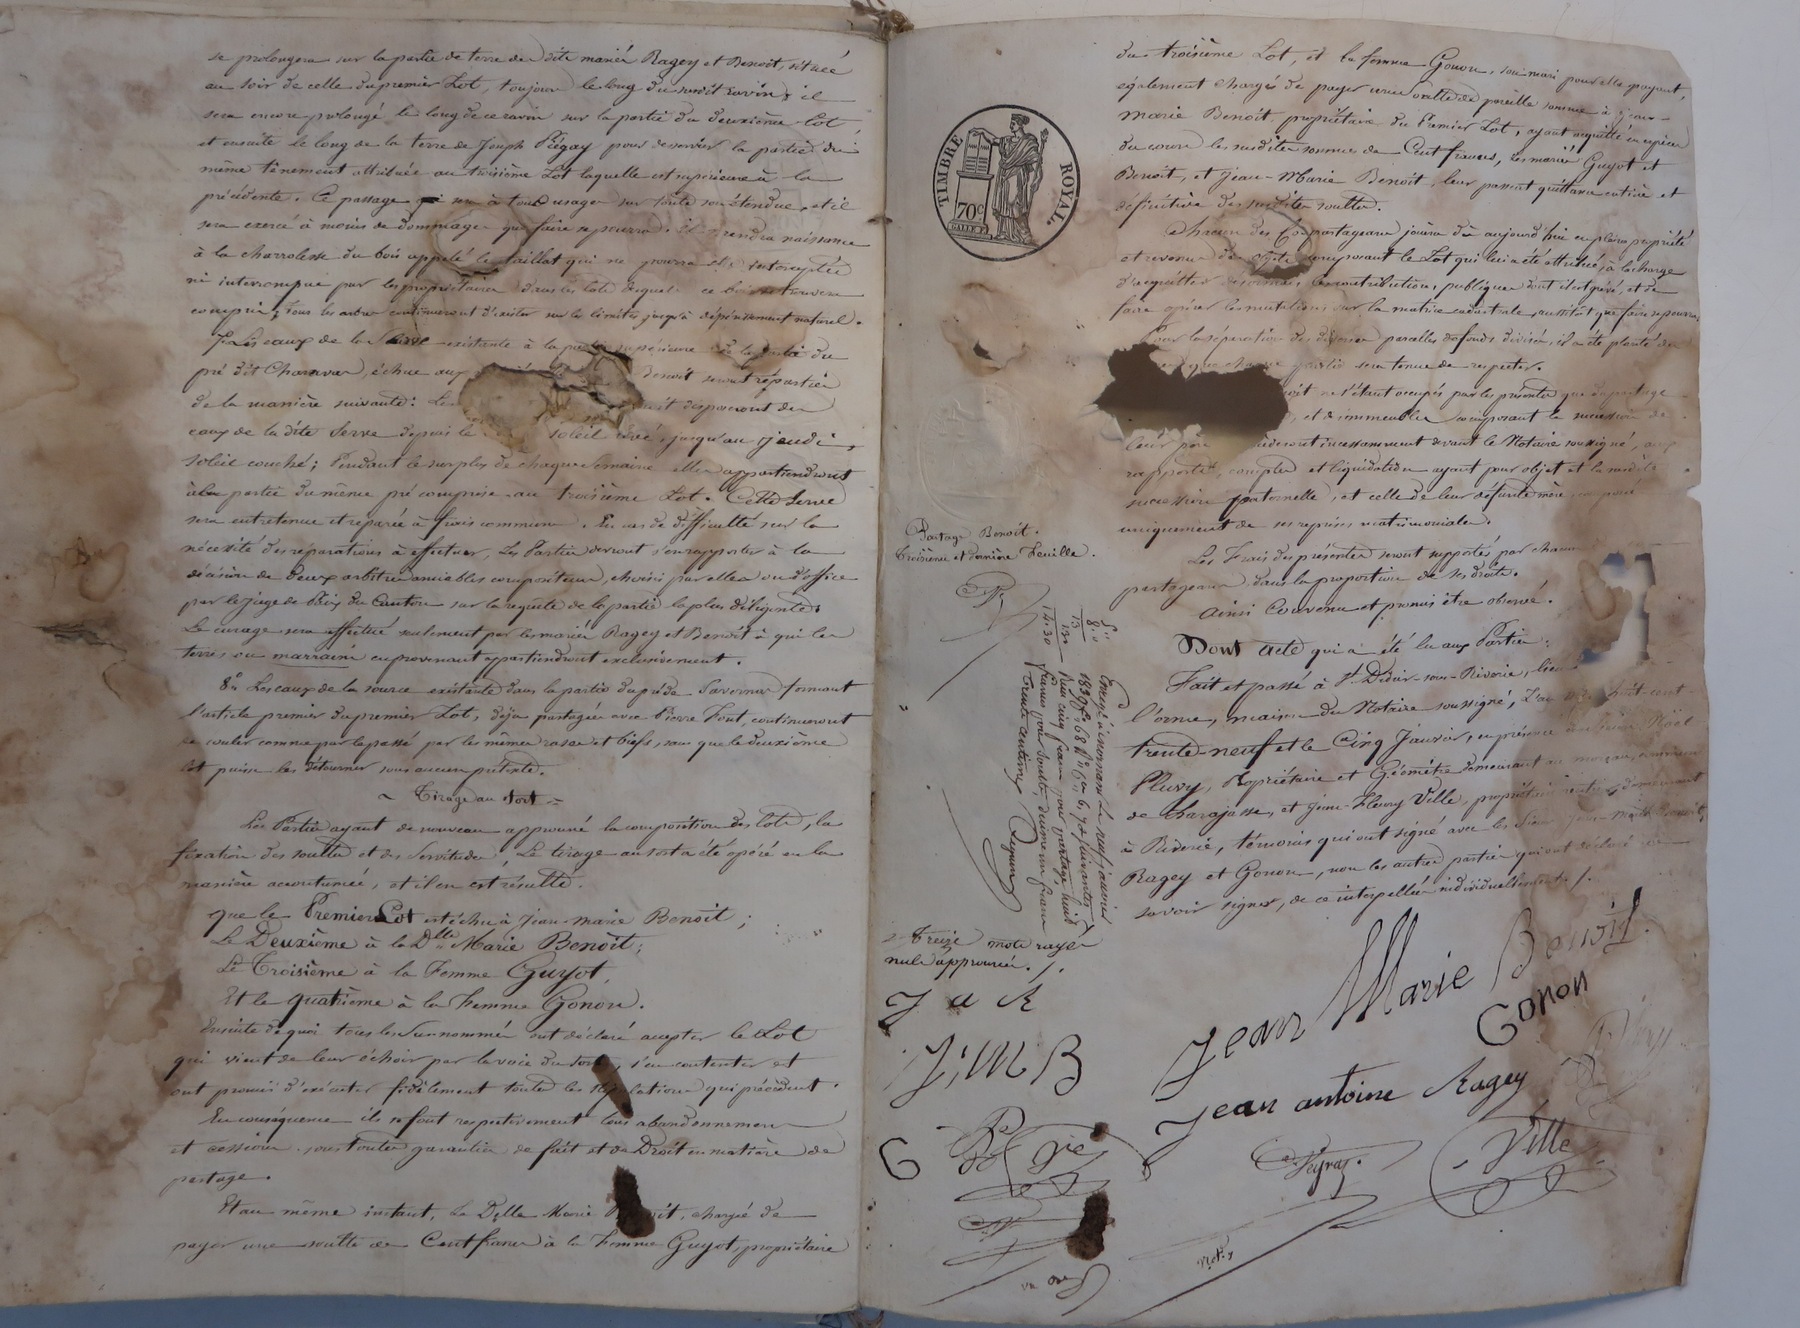 se prolongera sur la partie de terre des dits mariés Ragey et Benoit, située
au soir de celle du premier Lot, toujours le long du susdit ravin; il
sera encore prolongé le long de ce ravin sur la partie du deuxième Lot
et ensuite le long de la terre de Joseph Piégay pour desservir la partie du
même tènement attribuée au troisième Lot laquelle est supérieure à la
précédente. Ce passage sera à tous usages sur toute son étendue, et il
sera exercé à moins de dommage que faire se pourra. il prendra naissance
à la charrolesse du bois appelé le taillat qui ne pourra être interceptée
ni interrompue par les propriétaires dans les lots desquels ce bois se trouvera
compris; tous les arbres continueront d'exister sur les limites jusqu'à dépérissement naturel.
7° Les eaux de la Serve existante à la partie supérieure de la
pré dit Charavan, échue aux Benoit seront réparties
de la manière suivante: Les disposeront des
eaux de la dite Serve depuis le soleil levé, jusqu'au jeudi,
soleil couché; Pendant le surplus de chaque Semaine elles appartiendront
à la partie du même pré comprise au troisième Lot. Cette Serve
sera entretenue et réparée à frais communs. En cas de difficulté sur la
nécessité des réparations à effectuer, Les Parties devront s'en rapporter à la
décision de deux arbitres amiables compositeurs, choisis par elles ou d'office
par le juge de Paix du Canton sur la requête de la partie la plus diligente.
Le curage sera effectué seulement par les mariés Ragey et Benoit à qui les
terres ou marrains en provenant appartiendront exclusivement.
8° Les eaux de la source existante dans la partie du pré de Savernas formant
l'article premier du premier Lot, déjà partagées avec Pierre Font, continueront
de couler comme par le passé par les mêmes rases et biefs, sans que le deuxième
lot puisse les détourner sous aucun prétexte.
~ Tirage au Sort ~
Les Parties ayant de nouveau approuvé la composition des lots, la
fixation des soultes et des Servitudes, Le tirage au sort a été opéré en la
manière accoutumée, et il en est résulté.
que le Premier Lot est échu à Jean-marie Benoit;
Le Deuxième à la Dlle Marie Benoit;
Le Troisième à la Femme Guyot,
Et le quatrième à la femme Gonon.
Ensuite de quoi tous les Surnommés ont déclaré accepter le Lot
qui vient de leur échoir par la voie du sort, s'en contenter et
ont promis d'exécuter fidèlement toutes les stipulations qui précèdent.
En conséquence ils se font respectivement tous abandonnemens
et cessions sous toutes garanties de fait et de Droit en matière de
partage.
Et au même instant, La Delle Marie Benoit, chargée de
payer une soulte de Cent francs à la femme Guyot, propriétaire
TIMBRE ROYAL.
70c
du troisième Lot, et la femme Gonon, son mari pour elle payant,
également chargée de payer une soulte de pareille somme à Jean-
Marie Benoit, propriétaire du Premier Lot, ayant acquitté en espèces
du cours les susdites sommes de Cent francs, Les mariés Guyot et
Benoit, et Jean-Marie Benoit, leur passent quittance entière et
définitive des susdites soultes.
Chacun des Copartageans jouira dès aujourd'hui en pleine propriété
et revenus des objets composant le Lot qui lui a été attribué, à la charge
d'acquitter désormais les contributions publiques dont il est grévé, et de
faire opérer les mutations sur la matrice cadastrale, aussitôt que faire se pourra.
Pour la séparation des diverses parcelles de fonds divisés, il a été planté des
que chaque partie sera tenue de respecter.
ne s'étant occupés par les présentes que du partage
et des immeubles composant la succession de
leur père incessamment devant le Notaire soussigné, aux
rapports, comptes et liquidation ayant pour objet et la susdite
succession paternelle, et celle de leur défunte mère, composée
uniquement de ses reprises matrimoniales.
Les Frais des présentes seront supportés par chaun
partageans dans la proportion de ses droits.
Ainsi Convenu et promis être observé.
Dont Acte qui a été lu aux Parties;
Fait et passé à St. Didier-sous-Riverie, lieu
l'orme, maison du Notaire soussigné, L'an mil huit-cent-
trente-neuf et le Cinq Janvier, en présence de Noël
Fluvy, Propriétaire et Géomètre demeurant au
de Charajasse, et Jean-Fleury Ville, propriétaire rentier, demeurant
à Riverie, témoins qui ont signé avec les Sieurs Jean-Marie Benoit,
Ragey et Gonon, non les autres parties qui ont déclaré ne
savoir signer, de ce interpellées individuellement ./.
Partage Benoit.
Troisième et dernière Feuille.
Enregé à Mornant Le neuf janvier
1839 f° 68 R° C. 6, 7 et suivantes
Reçu cinq francs pour partage, huit
francs pour soulte, dixième un franc
trente centimes
5.,
8.,
13
1.30
14.30
Treize mots rayés
nuls approuvés ./.
J a R
J. M B
G
Jean Marie Benoit
Gonon
Jean antoine Ragey
Ville
Peyrat.
Not.